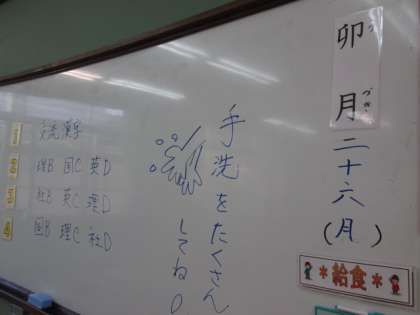 卯月二十六(月)
うづき
*給食*
手洗をたくさん
してね。
1
2 理B 国C 英D
3 社B 英C 理D
4 国B 理C 社D